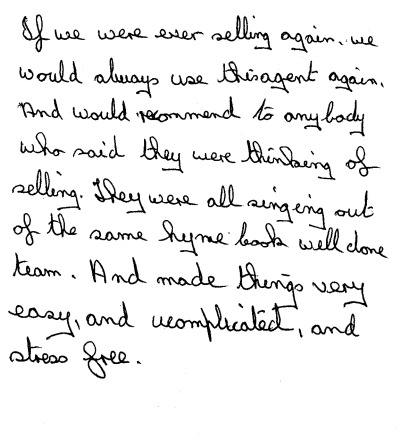 If we were ever selling again. we
would always use thisagent again.
And would recommend to anybody
who said they were thinking of
selling. They were all singeing out
of the same hyme book well done
team. And made things very
easy, and ucomplicated, and
stress free.